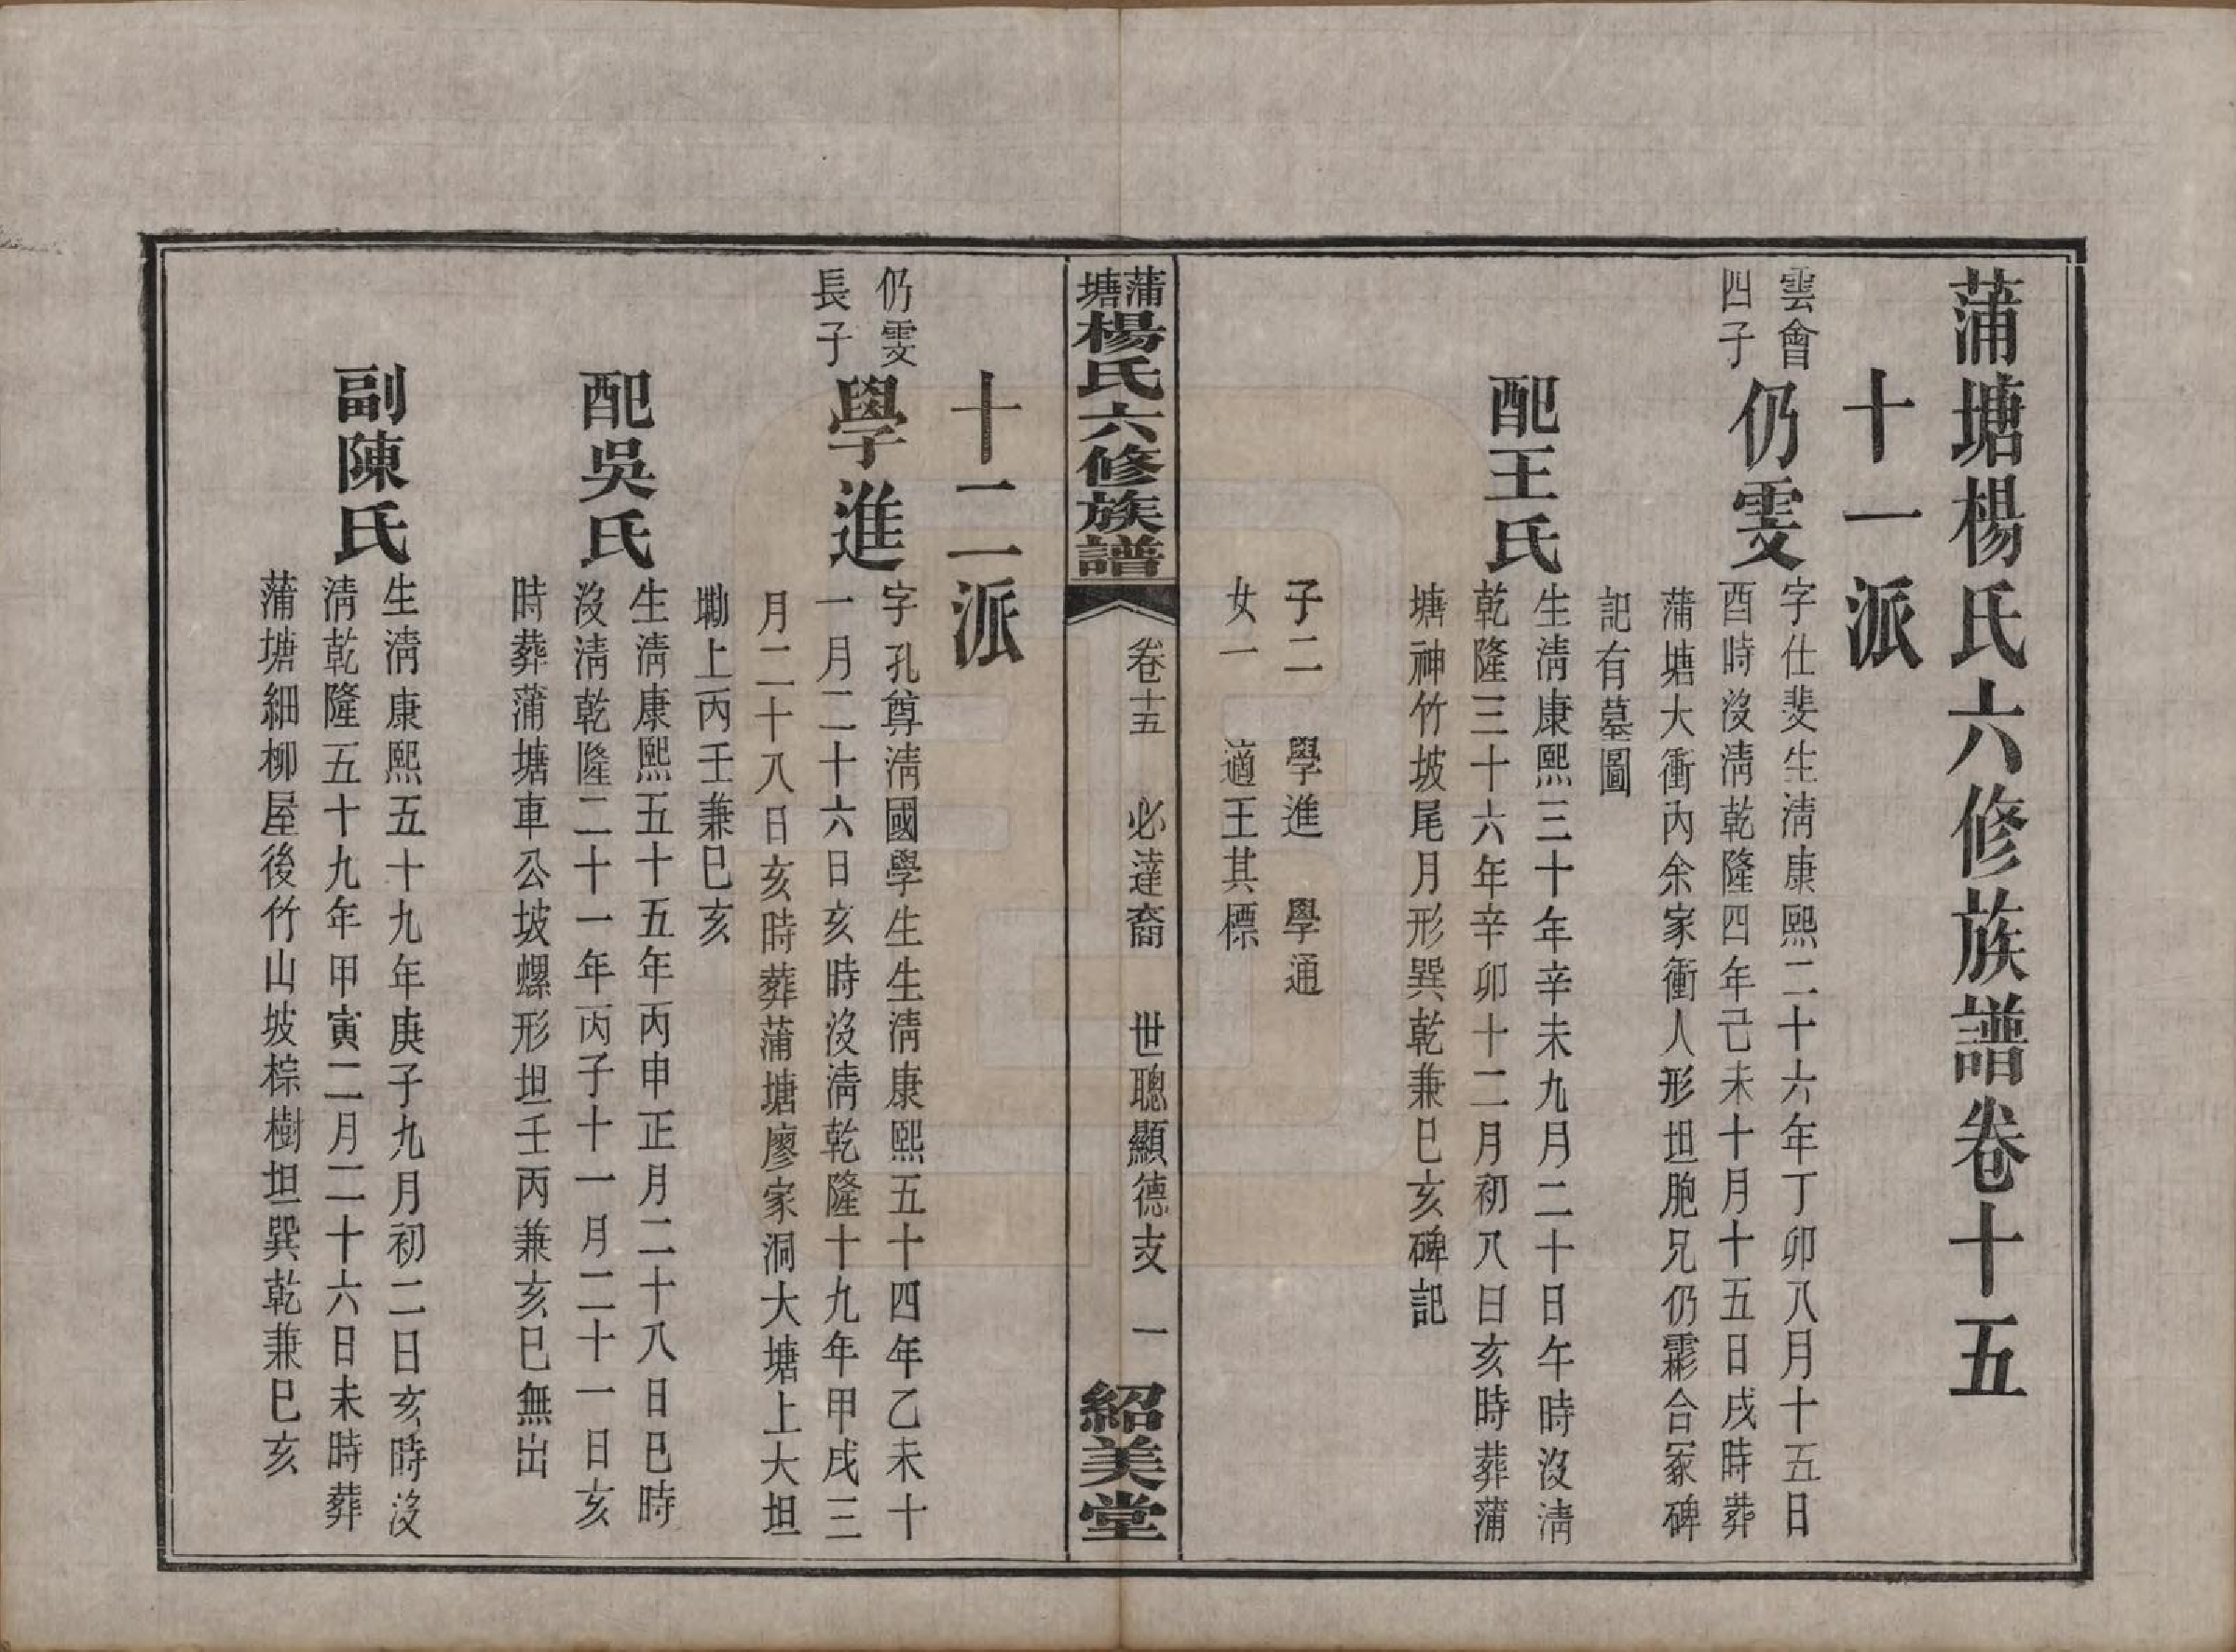 蒲塘楊氏六修族譜卷十五
十一派
雲會
四子
仍雯
字仕斐生淸康熙二十六年丁卯八月十五日
酉時沒淸乾隆四年己未十月十五日戌時葬
蒲塘大衝內余家衝人形坦胞兄仍霦合冢碑
記有墓圖
配王氏
生淸康熙三十年辛未九月二十日午時沒淸
乾隆三十六年辛卯十二月初八日亥時葬蒲
塘神竹坡尾月形巽乾兼巳亥碑記
子二　學進　學通
女一　適王其標
蒲塘楊氏六修族譜　卷十五　必達裔　世聰顯德支　一　紹美堂
十二派
仍雯
長子
學進
字孔尊淸國學生生淸康熙五十四年乙未十
一月二十六日亥時沒淸乾隆十九年甲戌三
月二十八日亥時葬蒲塘廖家洞大塘上大坦
墈上丙壬兼巳亥
配吳氏
生淸康熙五十五年丙申正月二十八日巳時
沒淸乾隆二十一年丙子十一月二十一日亥
時葬蒲塘車公坡螺形坦壬丙兼亥巳無出
副陳氏
生淸康熙五十九年庚子九月初二日亥時沒
淸乾隆五十九年甲寅二月二十六日未時葬
蒲塘細柳屋後竹山坡棕樹坦巽乾兼巳亥